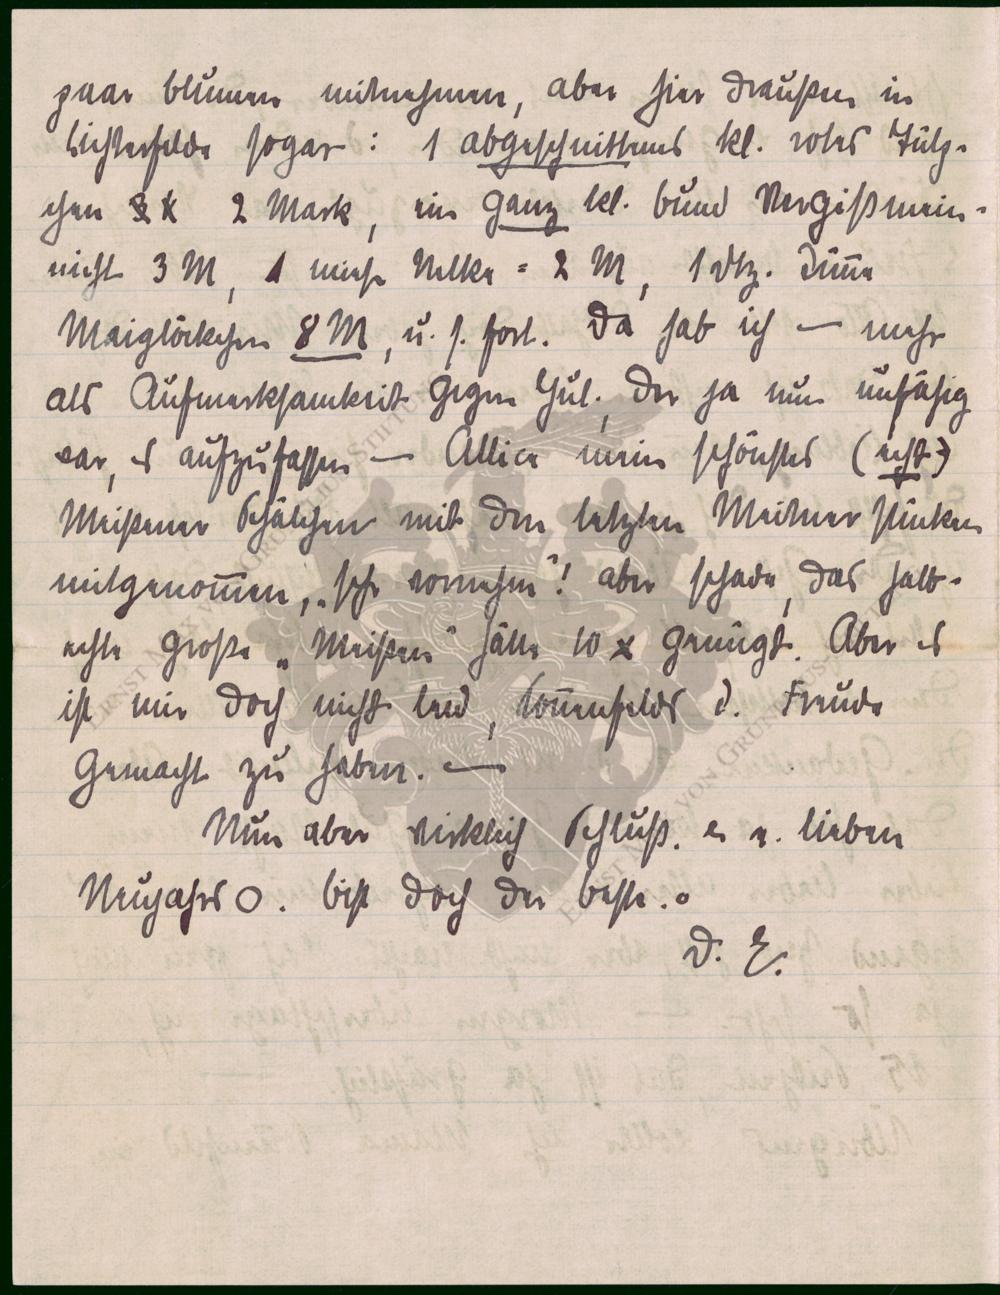 paar Blumen mitnehmen, aber hier draußen in
Lichterfelde sogar: 1 abgeschnittenes kl. rotes Tülp-
chen 2 Mark, ein ganz kl. bund Vergißmein-
nicht 3 M, 1 Nelke = 2 M, 1 Dtz. dünne
Maiglöckchen 8 M, u. s. fort. Da hab ich — mehr
als Aufmerksamkeit gegen Jul., der ja nun unfähig
war, es aufzufassen — Allice mein schönstes (echt)
Meißener Schälchen mit den letzten
mitgenommen, „sehr vornehm"! aber schade, das halb-
echte große „Meißen" hätte 10 x genügt. Aber es
ist mir doch nicht leid, Sonnenfelds d. Freude
gemacht zu haben. —
Nun aber wirklich Schluß. e. lieben
Neujahrs O. bist doch der beste.
D. E.